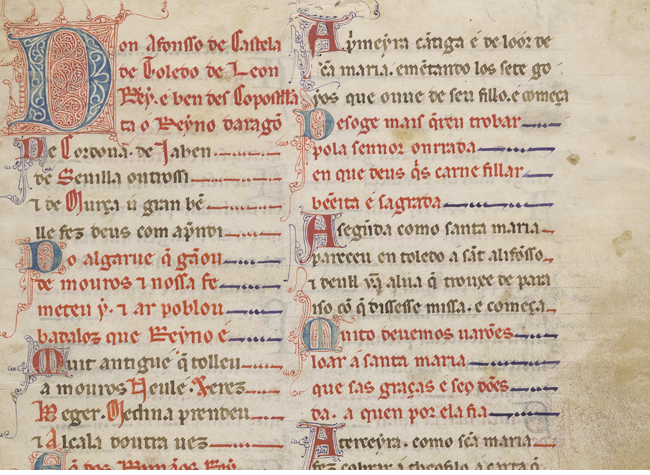 Don Afonsso de Castela
de Toledo de Leon
Rey. e ben des Coposte
ta ó Reyno daragõ
De Cordoua. de Jahen
de Seuilla outrossi
⁊ de Murça u gran bẽ
lle fez deus com ap̃ndi
Do algarue q̃ gãou
de mouros ⁊ nossa fe
meteu y. ⁊ ar poblou
badalloz que Reyno é
Muit antigue q̃ tolleu
a mouros Neule. Xerez
Beger. Medina prenden
⁊ Alcala doutra uez
Ap̃meyra cãtiga é de loor de
sc̃a maria. emẽtando los sete go
yos que ouue de seu fillo. e comeca
Desoge mais q̃reu trobar
pola sennor onrrada
en que deus q̃s carne fillar
bẽeita e sagrada
Asegũda como santa maria
pareceu en toledo a sãt alifonsso
⁊ deull ũa alua q̃ trouxe de para
iso cõ q̃ dissesse missa. e comeca
Muito deuemos uarões
loar á santa maria
que sas graças e seo dões
da. a quen por ela fia
Aterceyra. como sc̃a maria
fez cobrar a theofilo a carta q̃